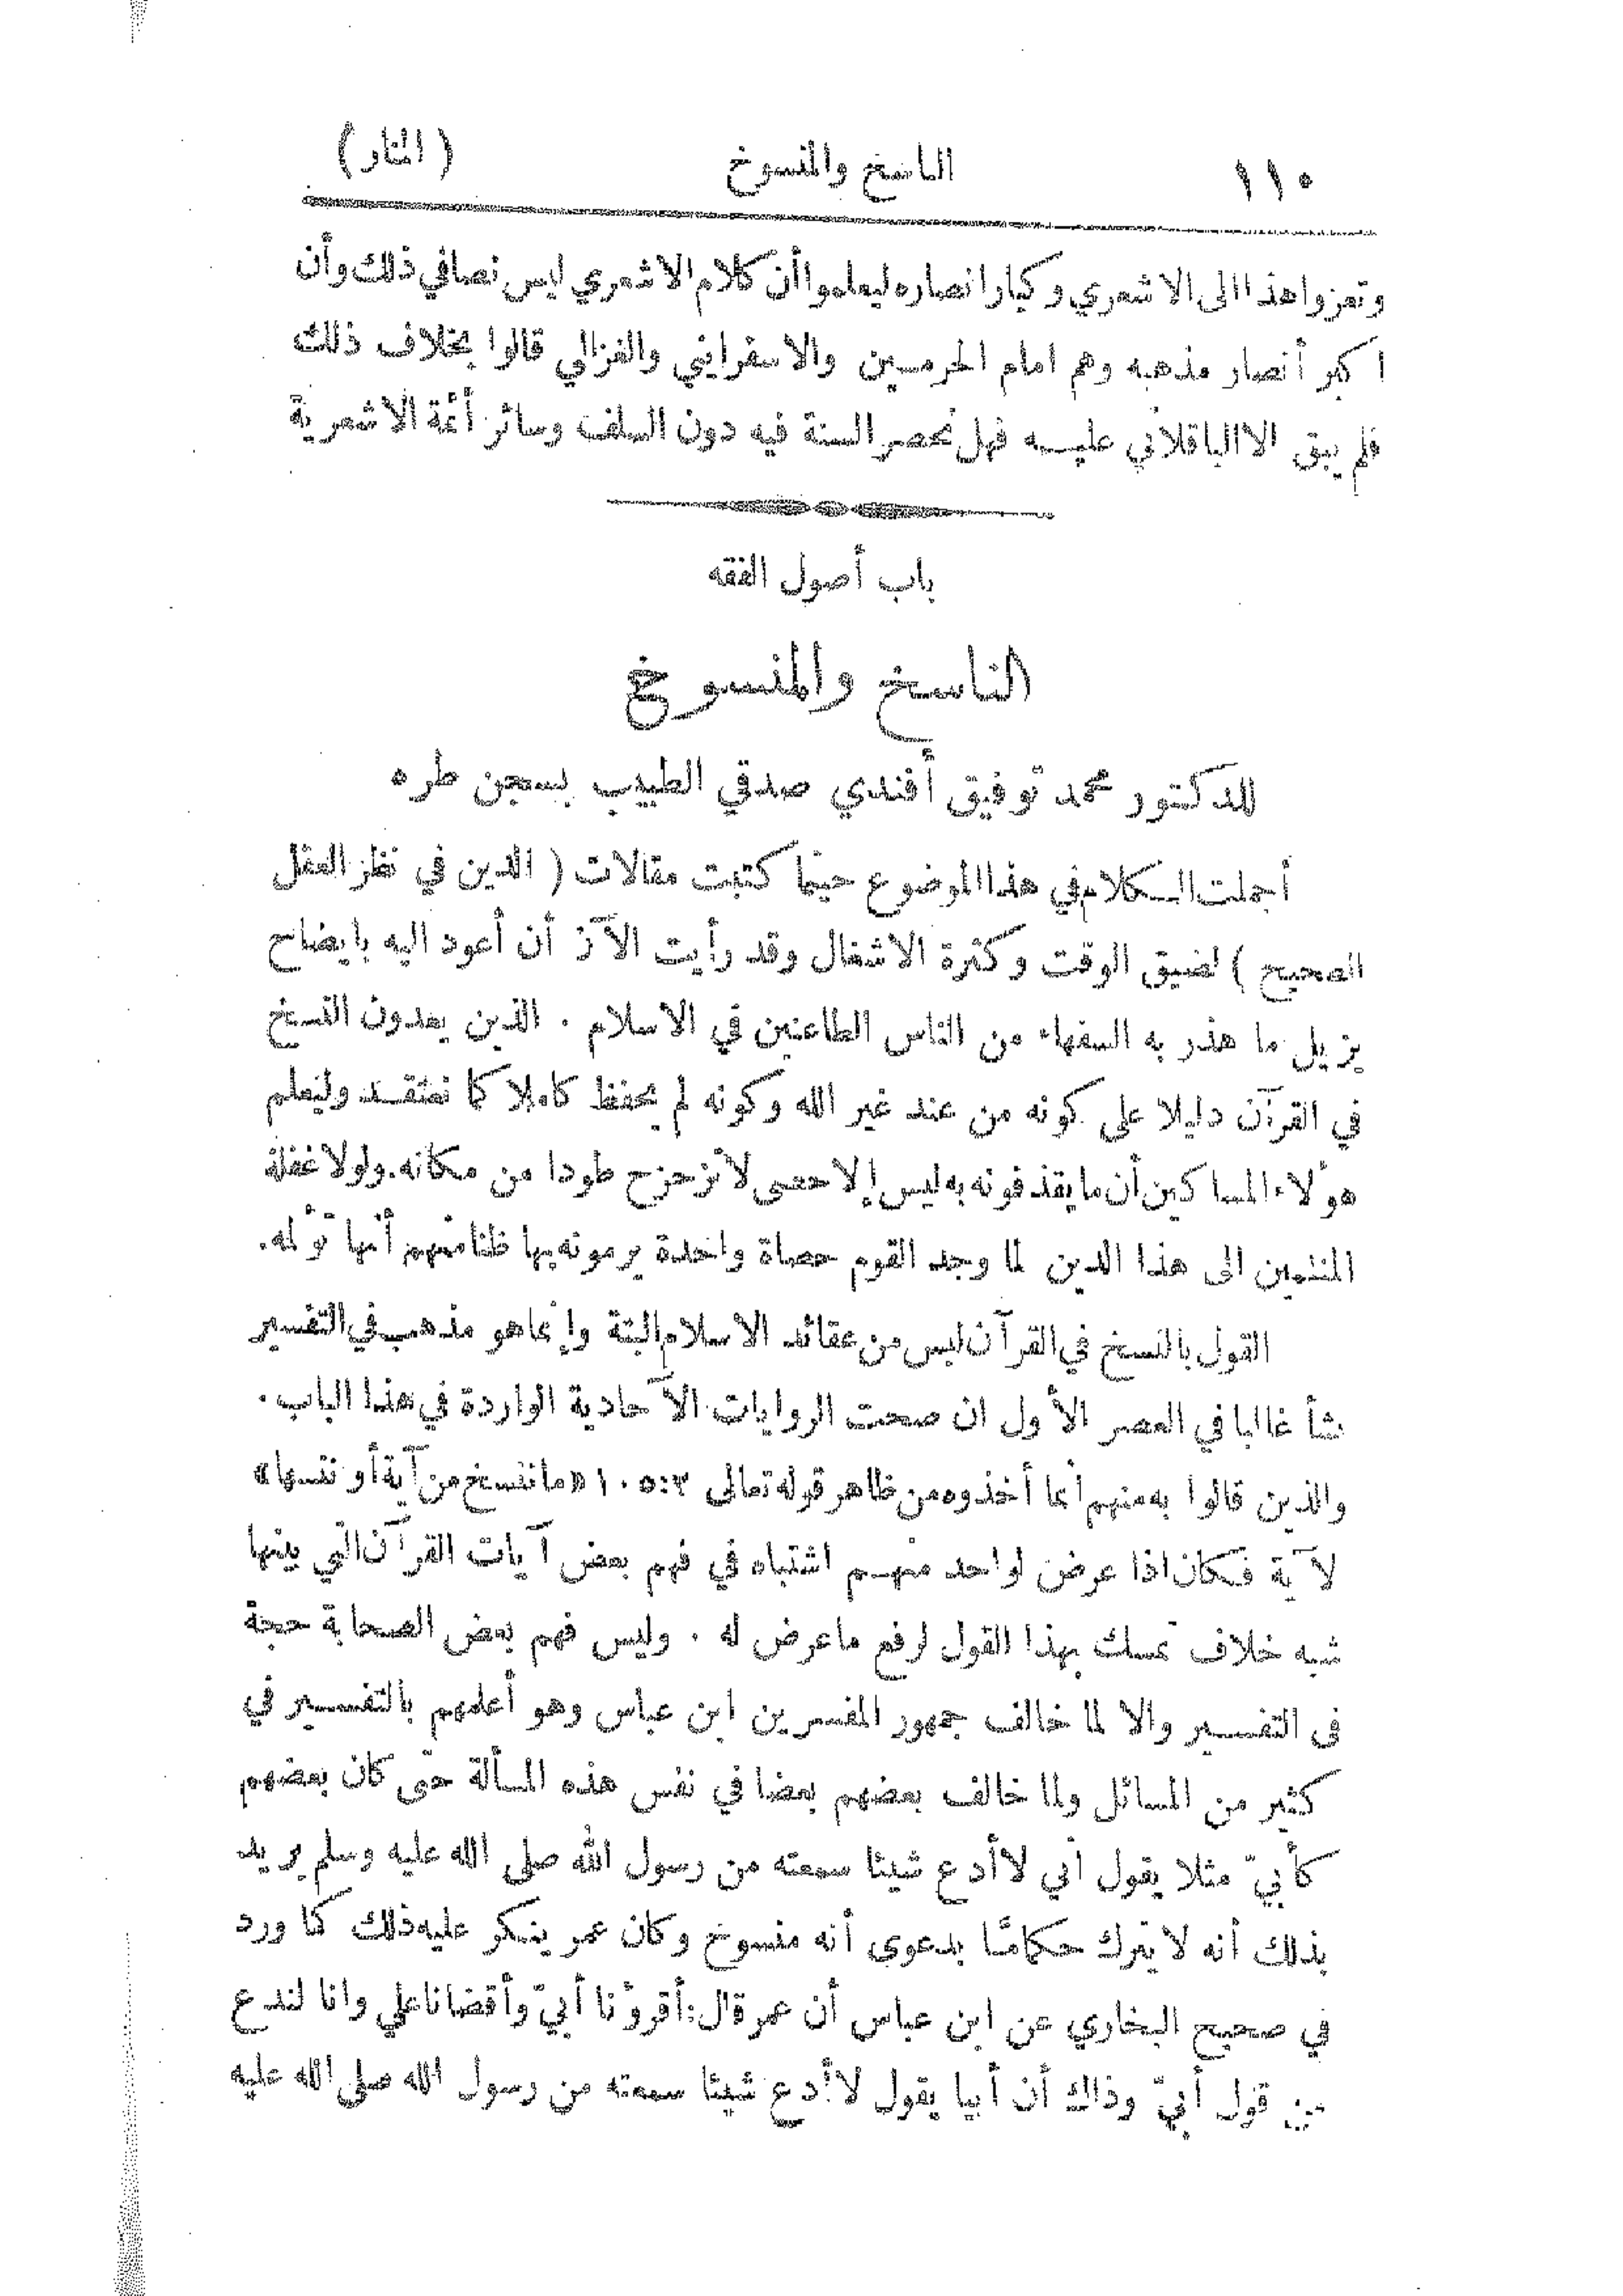 ١١٠ الناسخ والمنسوخ ( المنار )
وتعزوا هذا الى الاشعري وكبار انصاره ليعلموا أن كلام الاشعري ليس نصا في ذلك وأن
أكبر أنصار مذهبه وهم امام الحرمين والاسفرايني والغزالي قالوا بخلاف ذلك
فلم يبق الا الباقلاني عليه فهل نحصر السنة فيه دون السلف وسائر أئمة الاشعرية
باب أصول الفقه
الناسخ والمنسوخ
للدكتور محمد توفيق أفندي صدقي الطبيب بسجن طره
أجملت الكلام في هذا الموضوع حينما كتبت مقالات ( الدين في نظر العقل
الصحيح ) لضيق الوقت وكثرة الاشغال وقد رأيت الآن أن أعود اليه بايضاح
يزيل ما هذر به السفهاء من الناس الطاعنين في الاسلام . الذين يعدون النسخ
في القرآن دليلا على كونه من عند غير الله وكونه لم يحفظ كاملا كما نعتقد وليعلم
هؤلاء المساكين أن ما يقذفونه به ليس إلا حصى لا تزحزح طودا من مكانه. ولولا غفلة
المنتمين الى هذا الدين لما وجد القوم حصاة واحدة يرمونه بها ظنا منهم أنها تؤلمه.
القول بالنسخ في القرآن ليس من عقائد الاسلام البتة وإنما هو مذهب في التفسير
نشأ غالبا في العصر الأول ان صحت الروايات الآحادية الواردة في هذا الباب.
والذين قالوا به منهم انما أخذوه من ظاهر قوله تعالى ١٠٥:٢ « ما ننسخ من آية أو ننسها »
لآية فكان اذا عرض لواحد منهم اشتباه في فهم بعض آيات القرآن التي بينها
شبه خلاف تمسك بهذا القول لرفع ما عرض له . وليس فهم بعض الصحابة حجة
في التفسير والا لما خالف جمهور المفسرين ابن عباس وهو أعلمهم بالتفسير في
كثير من المسائل ولما خالف بعضهم بعضا في نفس هذه المسألة حتى كان بعضهم
كأبيّ مثلا يقول اني لا أدع شيئا سمعته من رسول الله صلى الله عليه وسلم يريد
بذلك أنه لا يترك حكما مّا بدعوى أنه منسوخ وكان عمر ينكر عليه ذلك كما ورد
في صحيح البخاري عن ابن عباس أن عمر قال: أقرؤنا أبيّ وأقضانا علي وانا لندع
من قول أبيّ وذاك أن أبيا يقول لا أدع شيئا سمعته من رسول الله صلى الله عليه